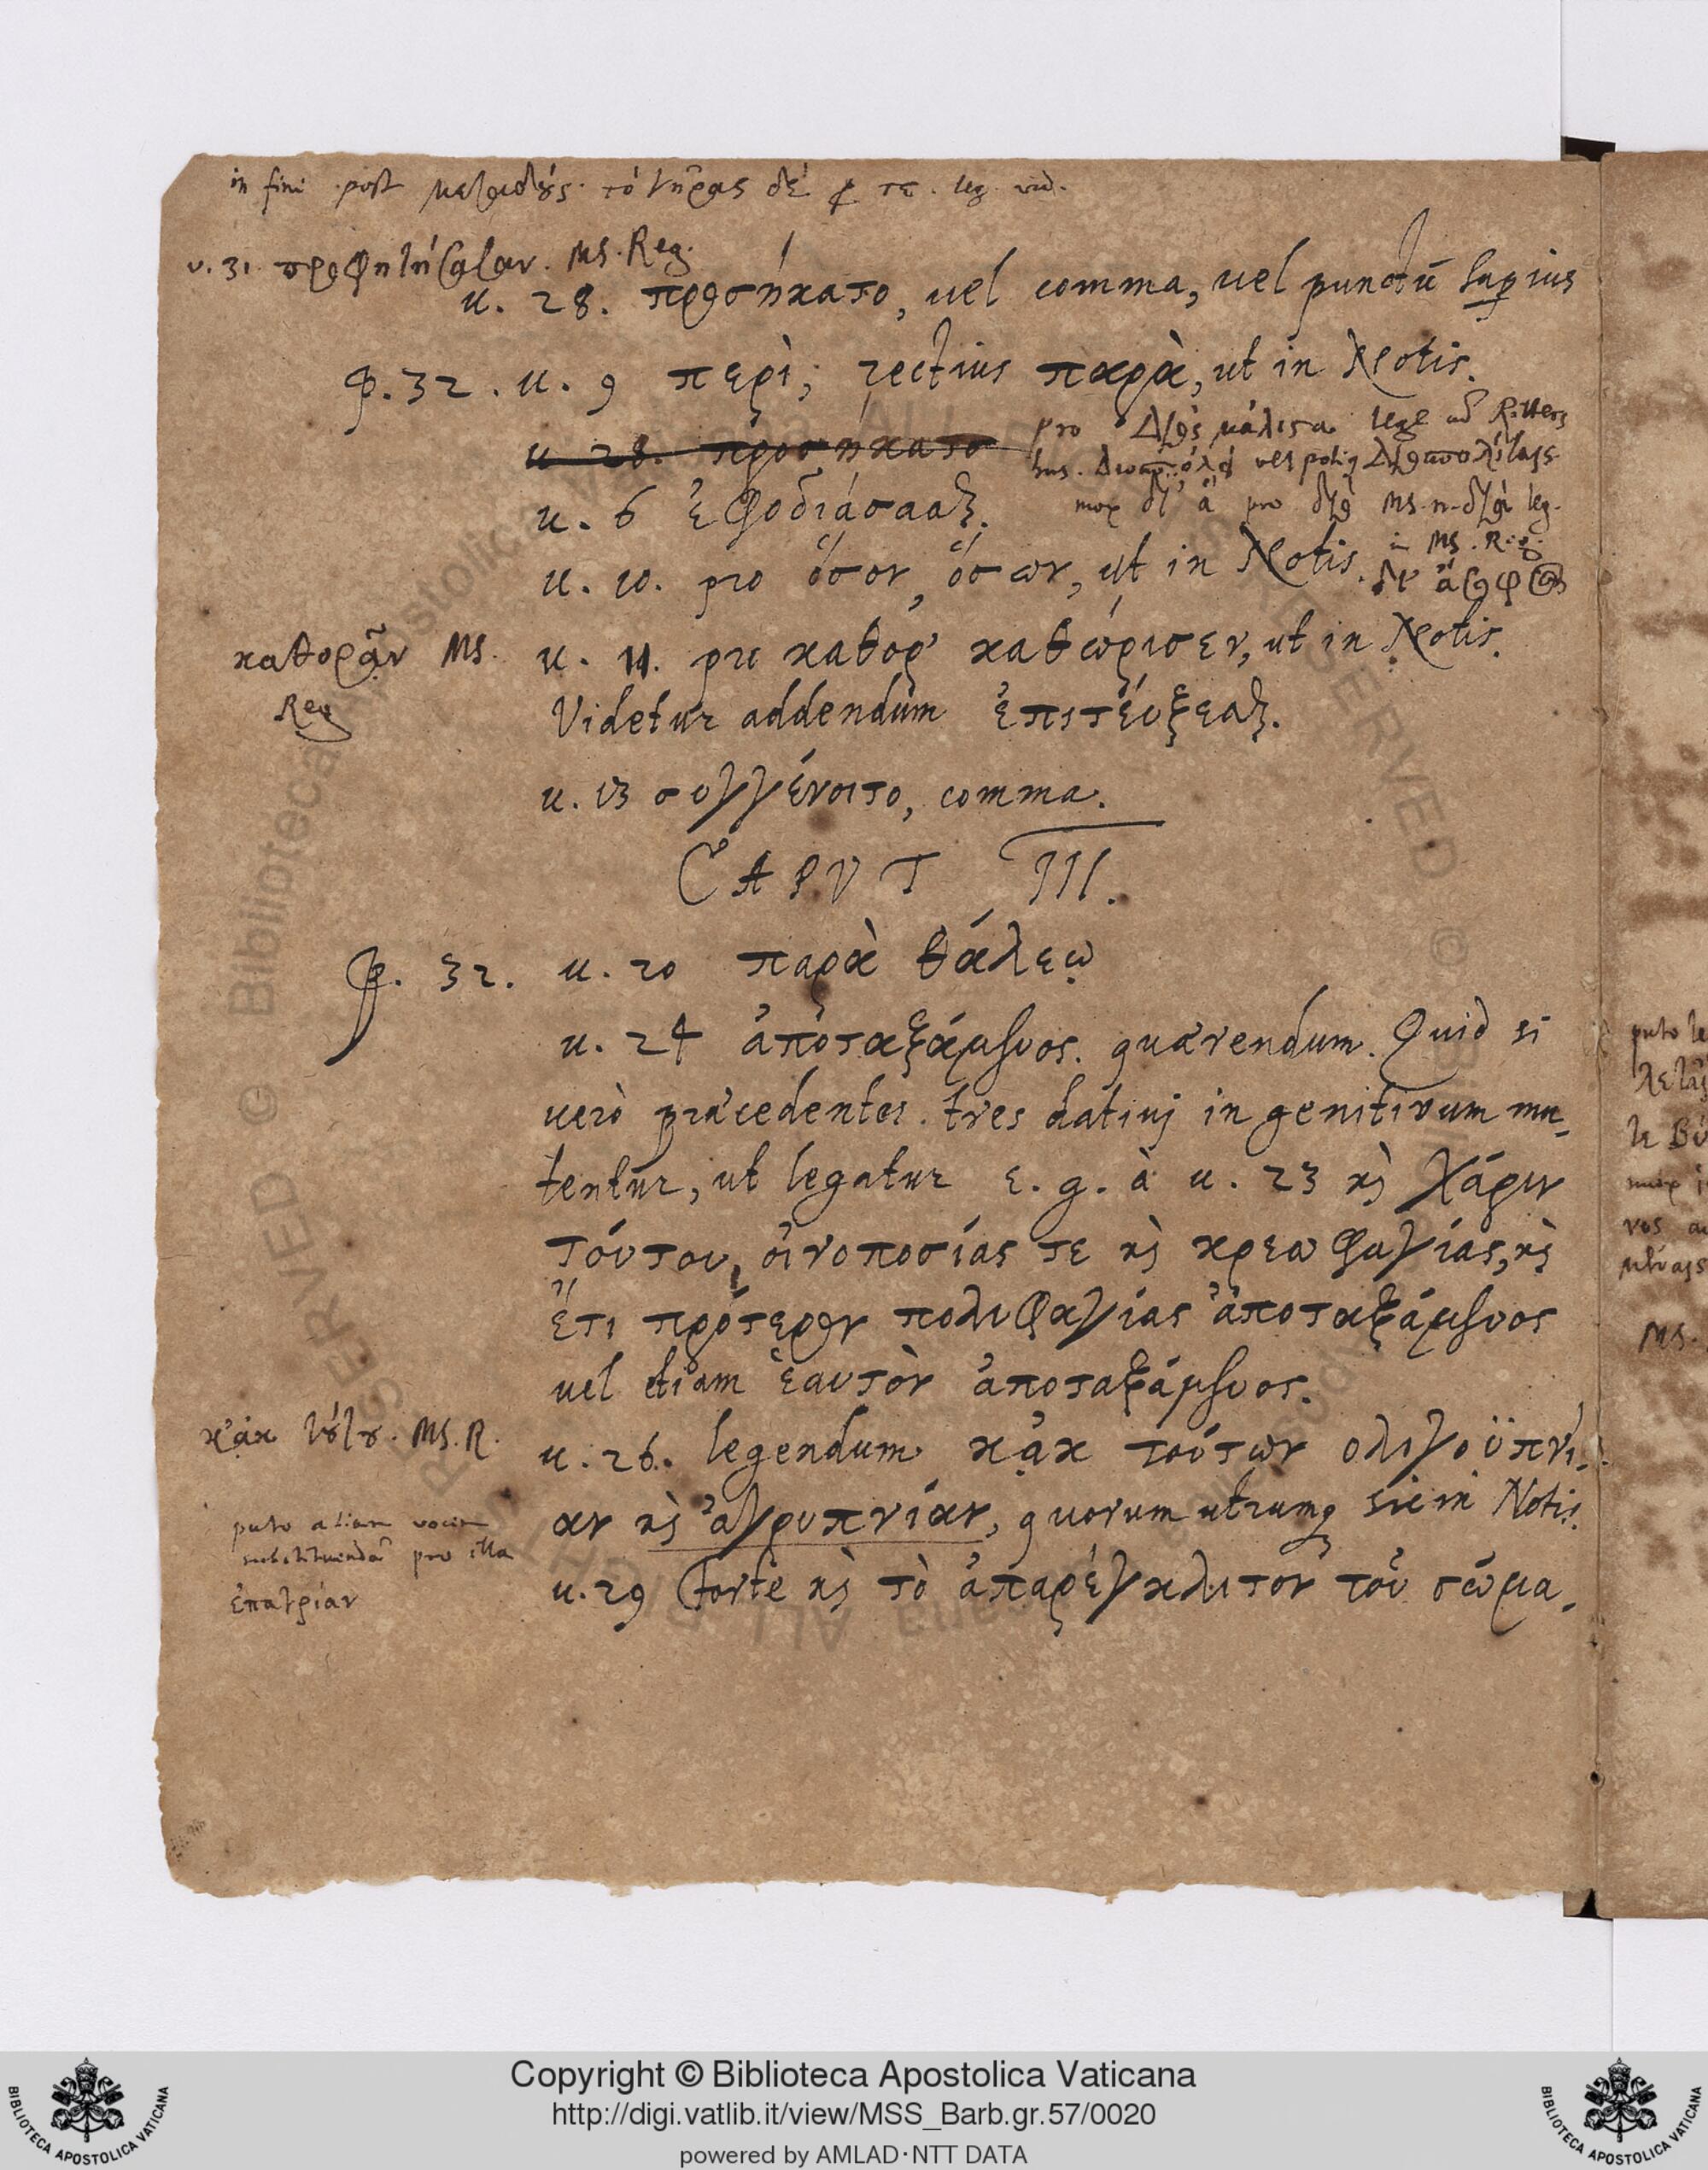 in fine post μεγιστους. τὸ γῆρας δέ τε. leg. vid.
v. 31. προφητήσασαν. MS. Reg.
u. 28. προσήκατο, uel comma, uel punctū superius
p. 32. u. 9 περὶ; rectius παρὰ, ut in Notis.
pro Διὸς μάλιστα lege ad Ritters
u 28. προσήκατο
hus. vel potiq Διοσπολίταις
u. 6 ἐφοδιάσααι.
mox δι' ἃ pro διὸ MS. n. leg.
in MS. Reg.
u. 10. pro ὅσον, ὅσων, ut in Notis.
καθορᾷν MS.
Reg
u. 11. pro καθορ' καθώρισεν, ut in Notis.
Videtur addendum ἐπιτεύξεαι.
u. 13 συγγένοιτο, comma.
CAPUT III.
p. 32. u. 20 παρὰ θάλεω
u. 24 ἀποταξάμενος. quærendum. Quid si
uerò præcedentes tres datiuj in genitivum mu-
tentur, ut legatur ε. g. à u. 23 κὶ χάριν
τούτου, οἰνοποσίας τε κὶ κρεωφαγίας, κὶ
ἔτι πρότερον πολυφαγίας ἀποταξάμενος
uel etiam ἑαυτὸν ἀποταξάμενος.
κᾀκ τούτου. MS. R.
u. 26. legendum κᾀκ τούτων ολιγοϋπνί-
αν κὶ ἀγρυπνίαν, quorum utrumq sic in Notis.
puto aliam vocem
substituendā pro illa
ἐπατρίαν
u. 29 forte κὶ τὸ ἀπαρέγκλιτον τοῦ σώμα-
puto le
MS.
Copyright © Biblioteca Apostolica Vaticana
http://digi.vatlib.it/view/MSS_Barb.gr.57/0020
powered by AMLAD·NTT DATA
BIBLIOTECA APOSTOLICA VATICANA
BIBLIOTECA APOSTOLICA VATICANA